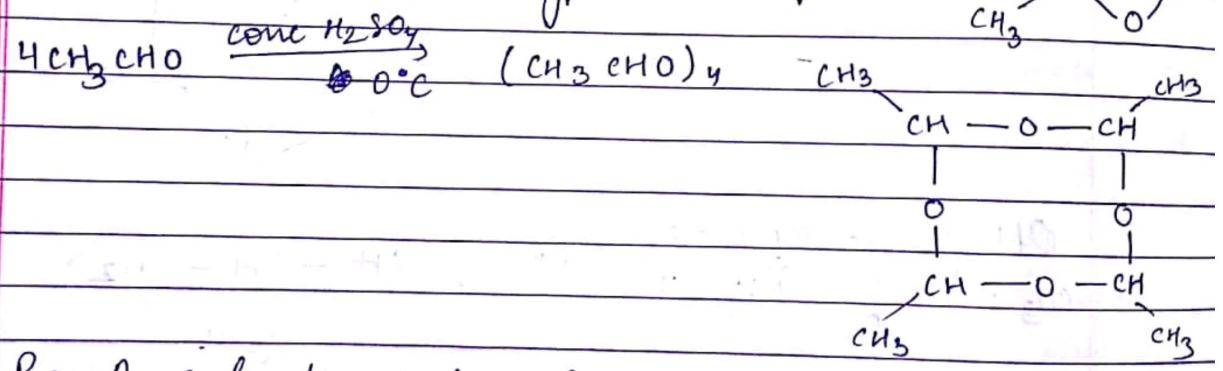 CH3 O
4CH3CHO conc H2SO4 0°C (CH3CHO)4 CH3 CH3
CH — O — CH
O O
CH — O — CH
CH3 CH3